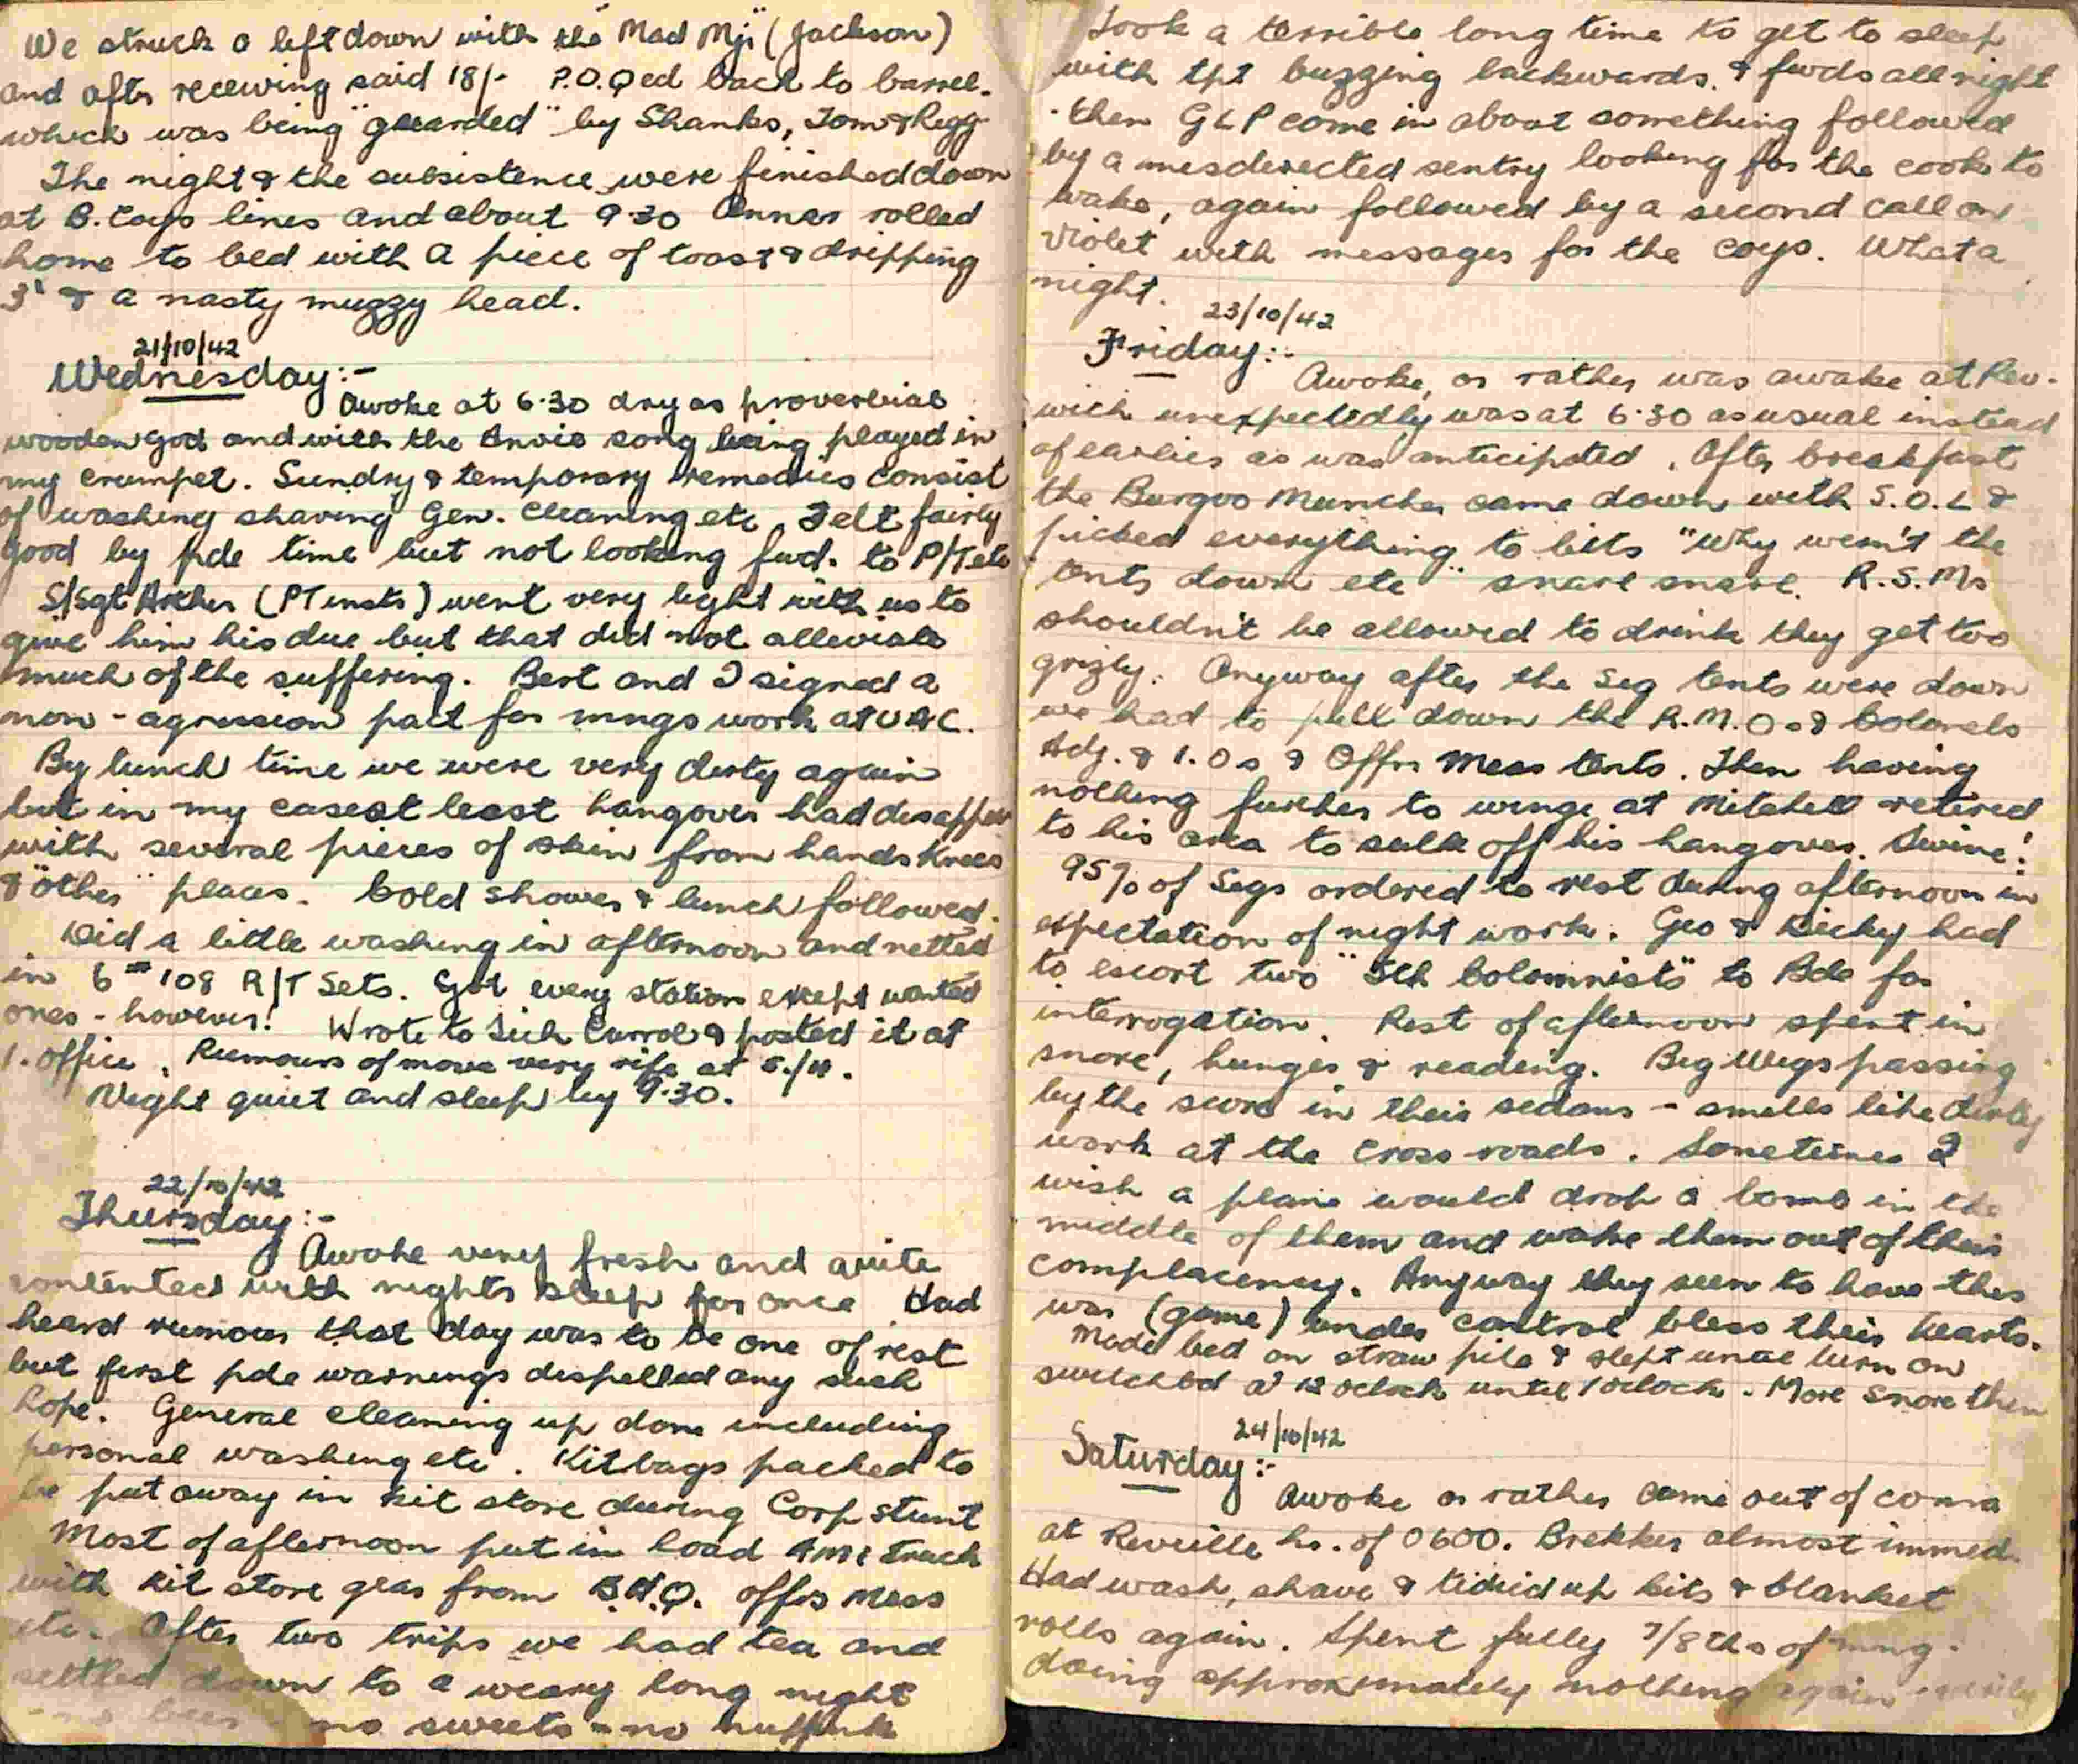 We struck a lift down with the "Mad Mjr" (Jackson)
and after receiving said 18/- P.O. Qed back to barrel.
which was being "guarded" by Shanks, Tom & Regg.
The night & the subsistence were finished down
at B. Coys lines and about 9.30 rolled
home to bed with a piece of toast & dripping
& a nasty muzzy head.
21/10/42
Wednesday:-
Awoke at 6.30 dry as proverbial
wooden god and with the Anvil song being played in
my crumpet. Sundry & temporary remedies consist
of washing shaving Gen. Cleaning etc. Felt fairly
good by pde time but not looking fwd. to P/T etc
S/Sgt Archer (PT insts) went very light with us to
give him his due but that did not alleviate
much of the suffering. Bert and I signed a
non-agression pact for mngs work at U A C.
By lunch time we were very dirty again
but in my case at least hangover had disappear
with several pieces of skin from hands Knees
& "other" places. Cold shower & lunch followed.
Did a little washing in afternoon and netted
in 6 108 R/T Sets. Got every station except wanted
ones - however! Wrote to Carrol & posted it at
I. office. Rumours of move very rife at
Night quiet and sleep by 9.30.
22/10/42
Thursday:-
Awoke very fresh and quite
contented with nights sleep for once Had
heard rumour that day was to be one of rest
but first pde warnings dispelled any such
hope. General cleaning up done including
personal washing etc. Kitbags packed to
be put away in kit store during Corp stunt
Most of afternoon put in load truck
with kit store gear from B.H.Q. offrs Mess
etc. After two trips we had tea and
settled down to a weary long night
- no beer - no sweets - no nuffink
Took a terrible long time to get to sleep
with tpt buzzing backwards. & fwds all night
- then G L P come in about something followed
by a misdirected sentry looking for the cook to
wake, again followed by a second call on
Violet with messages for the coys. What a
night.
23/10/42
Friday:-
Awoke, or rather was awake at Rev.
wich unexpectedly was at 6.30 as usual instead
of earlier as was anticipated. After breakfast
the Burgoo Muncher came down with S.O.L &
picked everything to bits "Why wern't the
tents down etc" snarl snarl. R.S.Ms
shouldn't be allowed to drink they get too
grizly. Anyway after the Sig tents were down
we had to pull down the R.M.Os & Colonels
Adj. & I.Os & Offrs Mess tents. Then having
nothing further to winge at Mitchell retired
to his area to sulk off his hangover. Swine!
95% of Sigs ordered to rest during afternoon in
expectation of night work. Geo & Dicky had
to escort two "5th Colomnists" to Bde for
interrogation. Rest of afternoon spent in
snore, hunger & reading. Big Wigs passing
by the score in their sedans - smells like dirty
work at the cross roads. Sometimes I
wish a plane would drop a bomb in the
middle of them and wake them out of their
complacency. Anyway they seem to have this
war (game) under control bless their hearts.
Made bed on straw pile & slept until turn on
switchbd at 12 oclock until 1 oclock. More snore then
24/10/42
Saturday:-
Awoke or rather came out of coma
at Reveille hr. of 0600. Brekker almost immed.
Had wash, shave & tidied up kits & blanket
rolls again. Spent fully 7/8ths of mng.
doing approximately nothing again